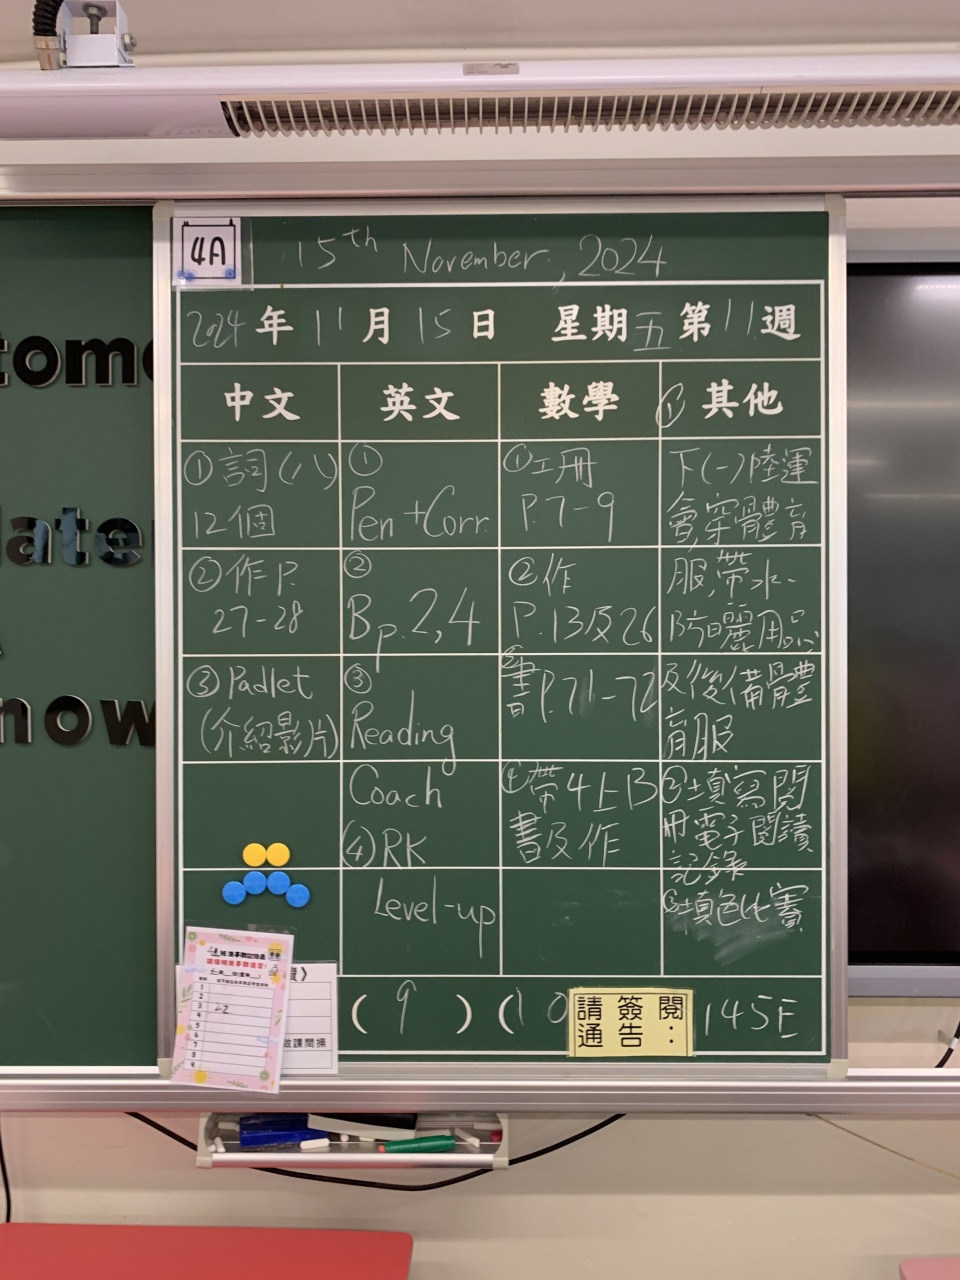 tome
4A
15th November, 2024
2024年11月15日 星期五第11週
中文 英文 數學 ①其他
①詞(八)
12個
②作P.
27-28
③Padlet
(介紹影片)
①
Pen+Corr.
②
Bp.2,4
③
Reading
Coach
④RK
Level-up
①工冊
P.7-9
②作
P.13及26
③書P.71-72
④帶4上B
書及作
下(一)陸運
會,穿體育
服,帶水、
防曬用品
及後備體
育服
②填寫閱
冊電子閱讀
記錄
③填色比賽
late
now
(9) (10
請簽閱
通告:
145E
1
2
3
4
5
6
7
8
9
22